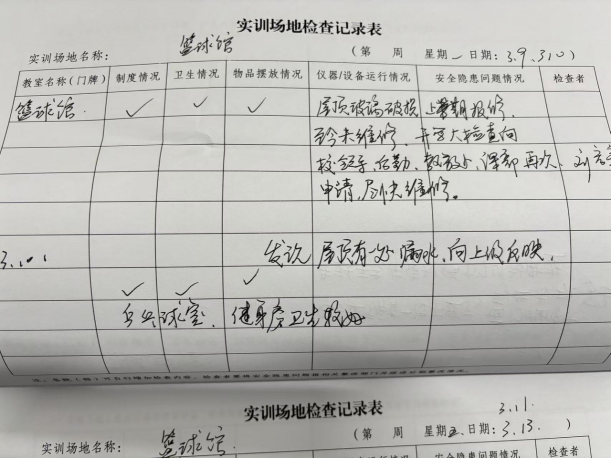 实训场地检查记录表
实训场地名称: 篮球馆 (第 周 星期一 日期: 3.9, 3.10)
教室名称(门牌) 制度情况 卫生情况 物品摆放情况 仪器/设备运行情况 安全隐患问题情况 检查者
篮球馆. ✓ ✓ ✓ 屋顶玻璃破损 上学期报修.
至今未维修, 开学大检查向
后勤、 再次、 刘
申请, 尽快维修。
3.10: 发现 屋顶有一处漏水, 向上级反映.
✓ ✓ ✓
乒乓球室. 健身房卫生较好
实训场地检查记录表
3.11.
实训场地名称: 篮球馆. (第 周 星期五 日期: 3.13.)
安全隐患问题情况 检查者